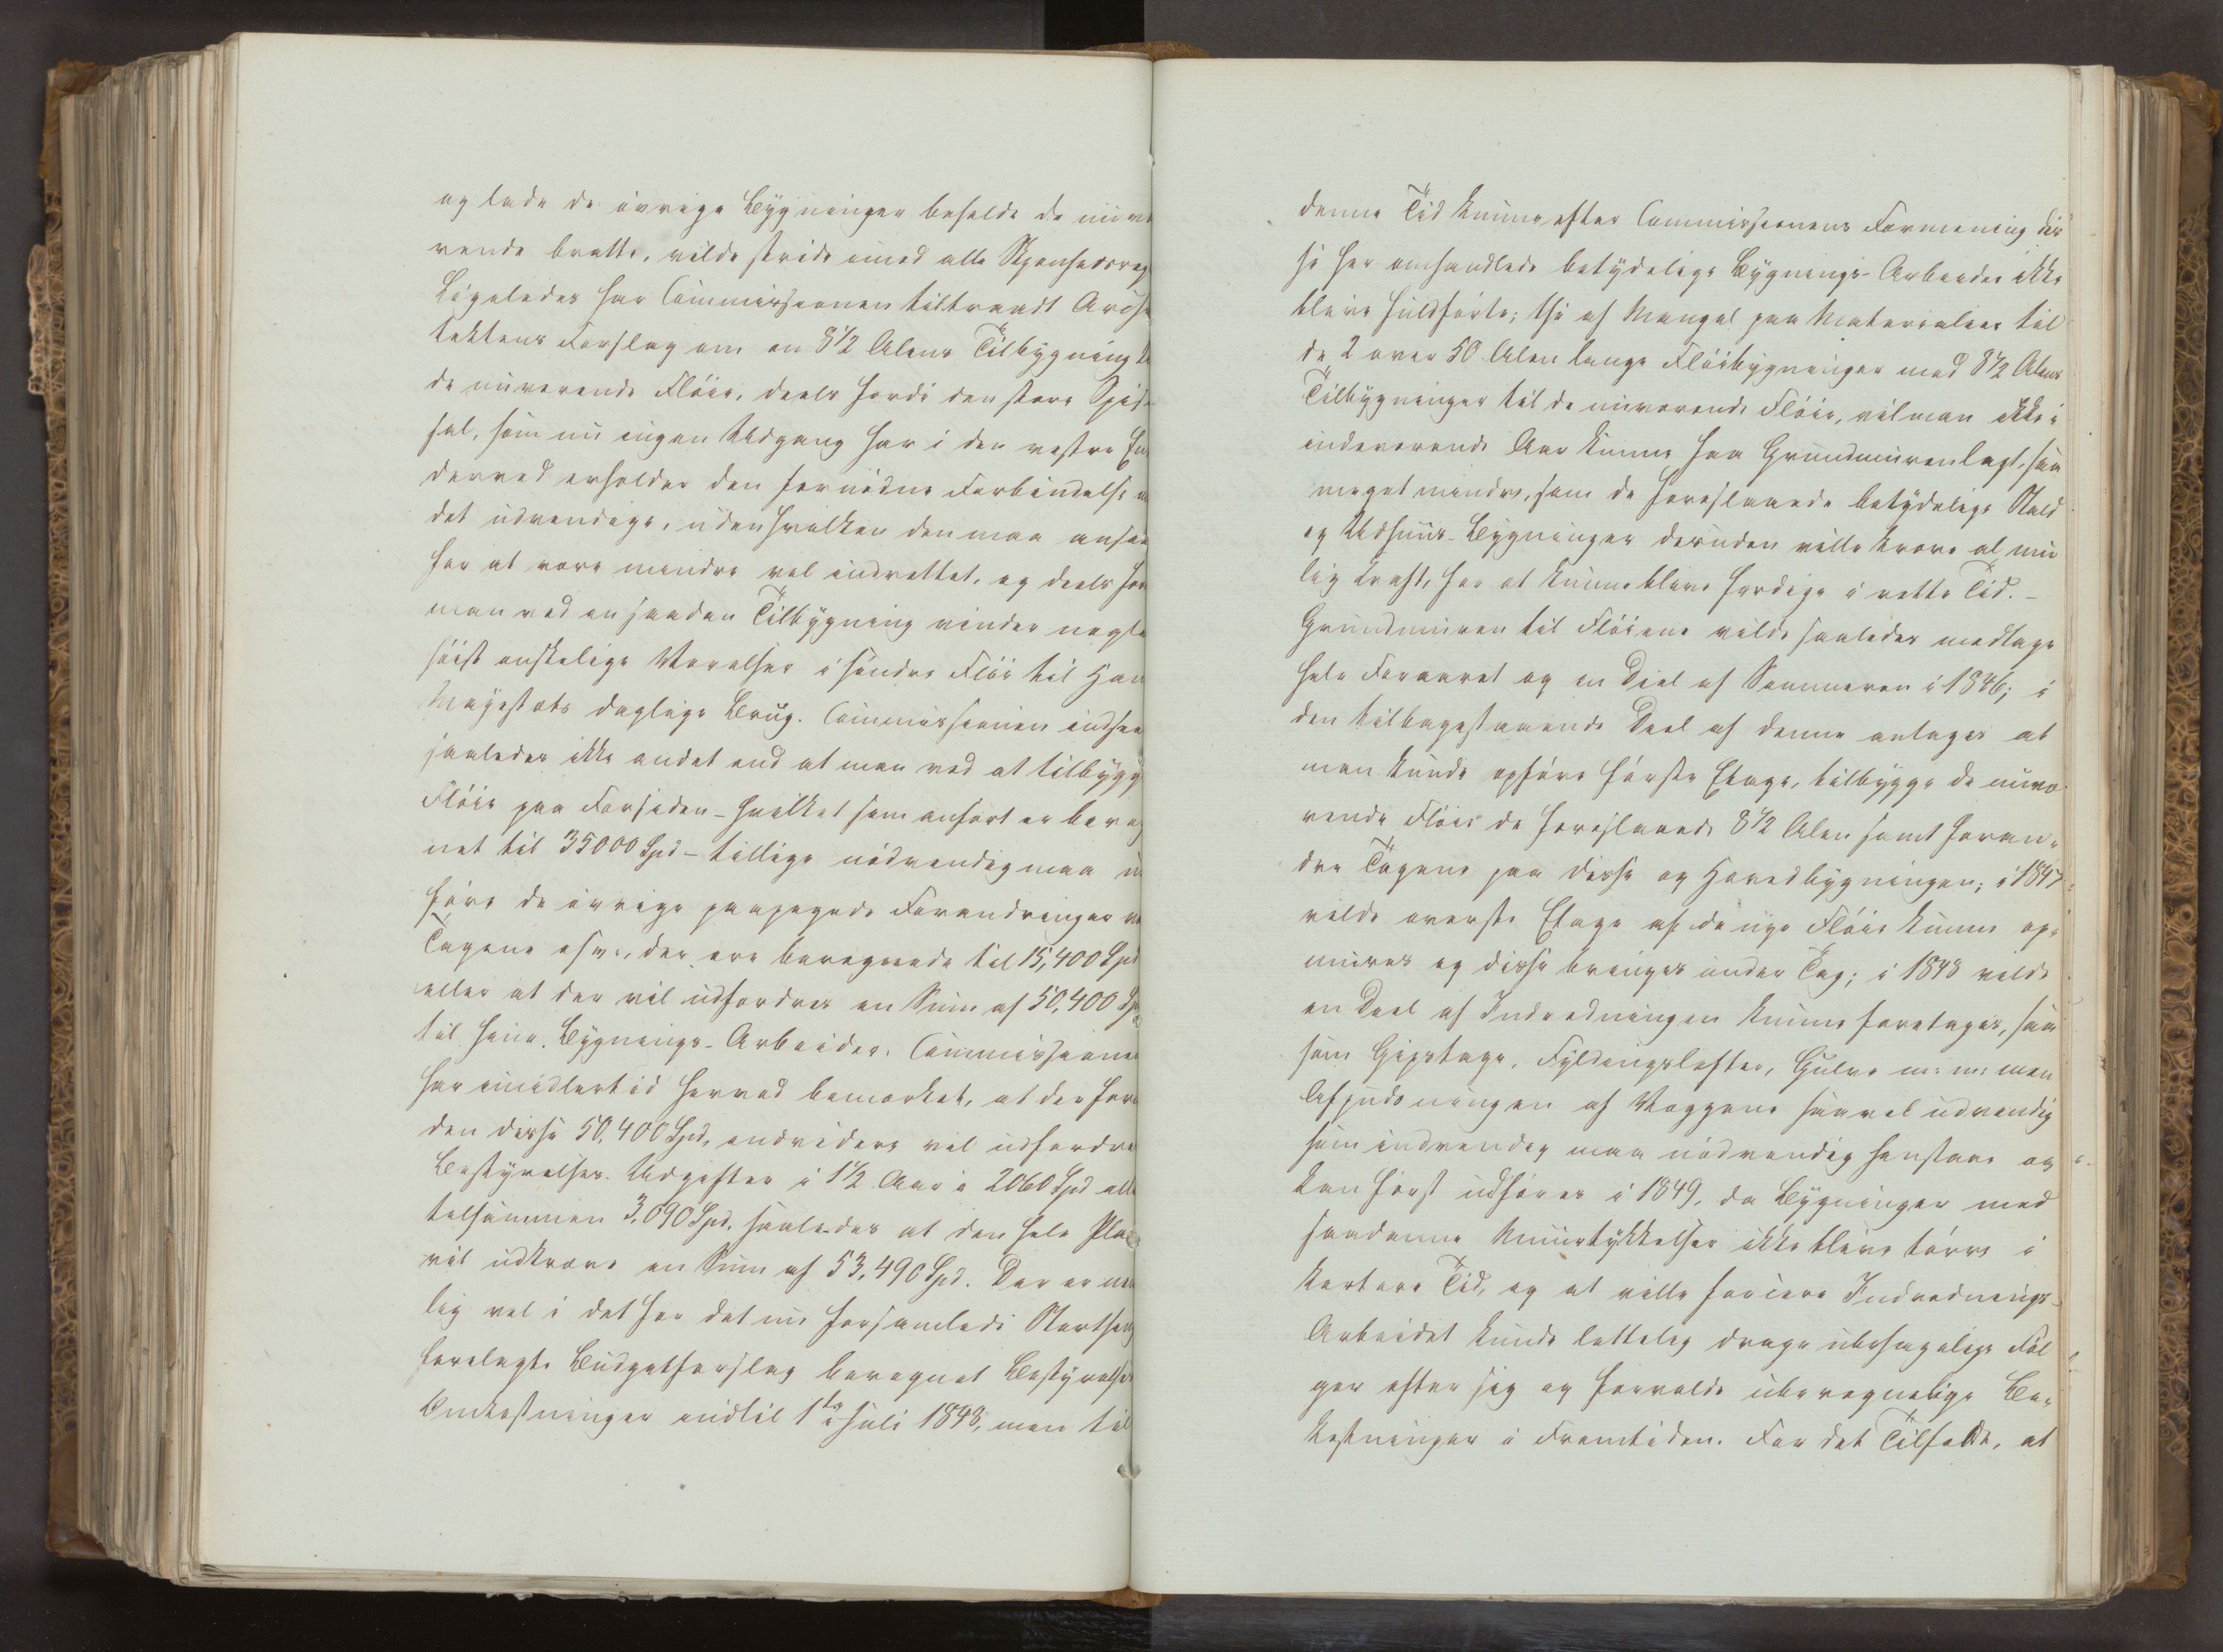 og lade de øvrige Bygninger beholde de nuvæ
rende bratte, vilde stride imod alle
Ligeledes har Commissionen tiltraadt Archi
tektens Forslag om en 8½ Alens Tilbygning
de nuværende Fløie, deels fordi den store Spise
sal, som nu ingen Udgang har i den vestre En
derved erholder den fornødne Forbindelse
det udvendige, uden hvilken den maa ansees
for at være mindre vel indrettet, og deels for
man ved en saadan Tilbygning vinder nogle
høist ønskelige Værelser i søndre Fløi til Han
Majestæts daglige Brug. Commissionen indseer
saaledes ikke andet end at man ved at tilbygge
Fløie paa Forsiden – hvilket som anført er bereg
net til 35000 Spd – tillige nødvendig maa ud
føre de øvrige paapegede Forandringer ve
Tagene osv., der ere beregnede til 15,400 Spd
eller at der vil udfordres en Sum af 50,400 Sp
til hine Bygnings-Arbeider. Commissionen
har imidlertid herved bemærket, at der foru
den disse 50,400 Spd, endvidere vil udfordres
Bestyrelses-Udgifter i 1½ Aar à 2060 Spd elle
tilsammen 3,090 Spd. saaledes at den hele Plan
vil udkræve en Sum af 53,490 Spd. Der er nem
lig vel i det for det nu forsamlede Storthing
forelagte Budgetforslag beregnet Bestyrelses
Omkostninger indtil 1ste Juli 1848, men til
denne Tid kunne efter Commissionens Formening dis
se her omhandlede betydelige Bygnings-Arbeider ikke
blive fuldførte; thi af Mangel paa Materialier til
de 2 over 50 Alen lange Fløibygninger med 8½ Alens
Tilbygninger til de nuværende Fløie, vil man ikke i
indeværende Aar kunne faa Grundmuren lagt, saa
meget mindre, som de foreslaaede betydelige Stald
og Udhuus-Bygninger desuden ville kræve al mu
lig Kraft, for at kunne blive færdige i rette Tid. –
Grundmuren til Fløiene vilde saaledes medtage
hele Foraaret og en Deel af Sommeren i 1846; i
den tilbagestaaende Deel af denne antages at
man kunde opføre første Etage, tilbygge de nuvæ
rende Fløie de foreslaaede 8½ Alen samt foran-
dre Tagene paa disse og Hovedbygningen; i 1847
vilde øverste Etage af de nye Fløie kunne op-
mures og disse bringes under Tag; i 1848 vilde
en Deel af Indredningen kunne foretages, saa
som Gipstage, Fyldingslofter, Gulve m: m: men
Afpudsningen af Væggene saavel udvendig
som indvendig maa nødvendig henstaae og
kan først udføres i 1849, da Bygninger med
saadanne Muurtykkelser ikke blive tørre i
kortere Tid, og at ville forcere Indrednings-
Arbeidet kunde lettelig drage ubehagelige Føl
ger efter sig og forvolde uberegnelige Be-
kostninger i Fremtiden. For det Tilfælde, at